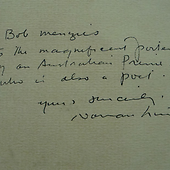 Bob Menzies
the magnificent
by an Australian Prime
who is also a poet.
yours sincerely
Norman